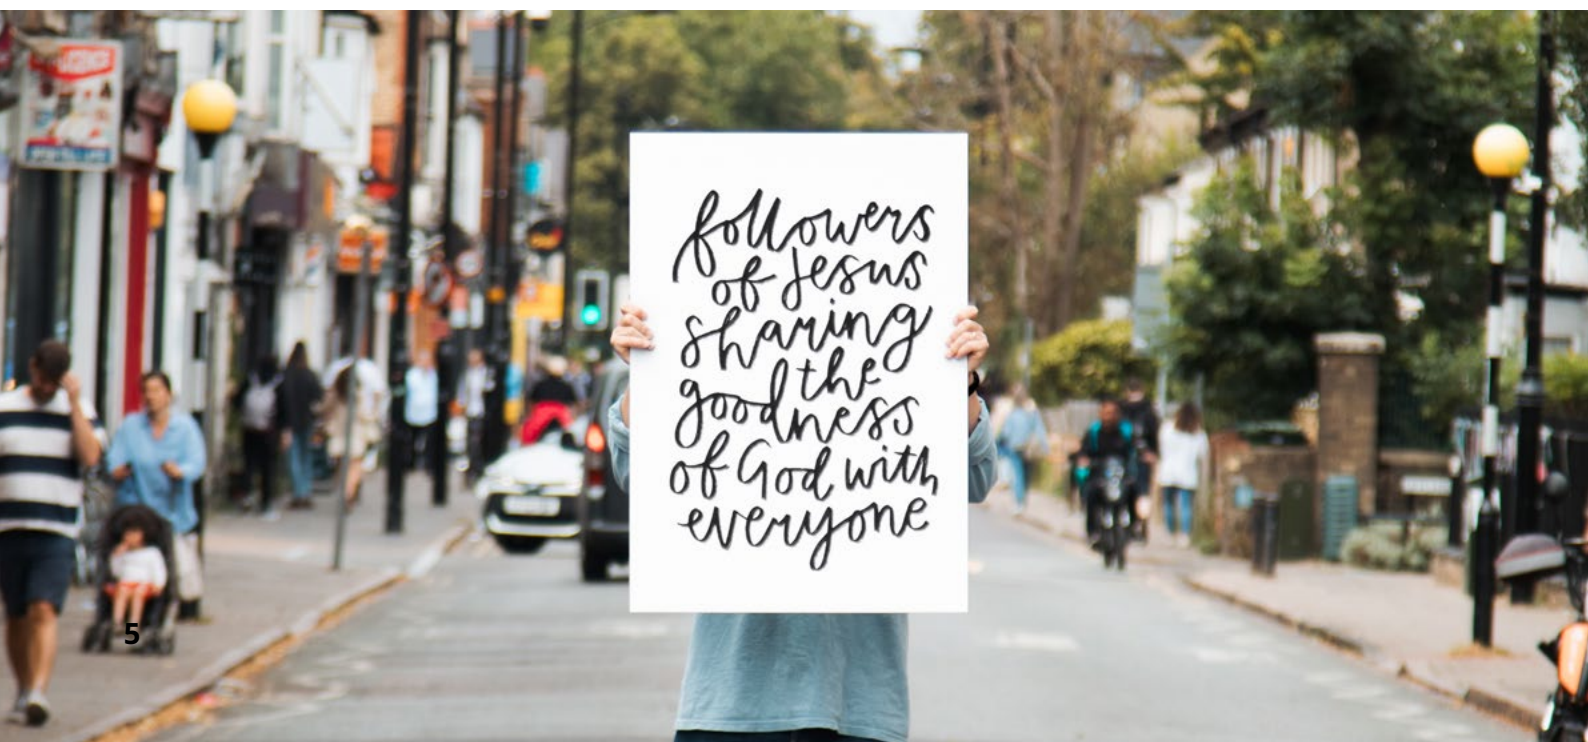 followers
of Jesus
sharing
the
goodness
of God with
everyone
5